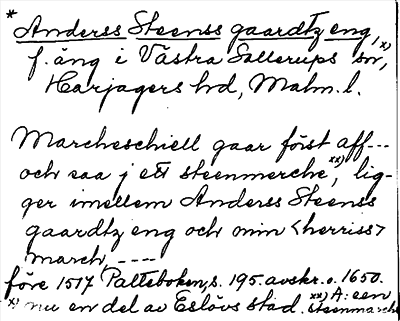 * Anderss Steenss gaardtz eng, x)
f. äng i Västra Sallerups sn,
Harjagers hd, Malm. l.
Marcheschiell gaar först aff---
och saa j ett steenmerche xx), lig-
ger imellem Anderss Steenss
gaardtz eng och min <herriss>
march, ----
före 1517 Palteboken, s. 195. avskr. o. 1650.
x) nu en del av Eslövs stad. xx) A: een steenmarche